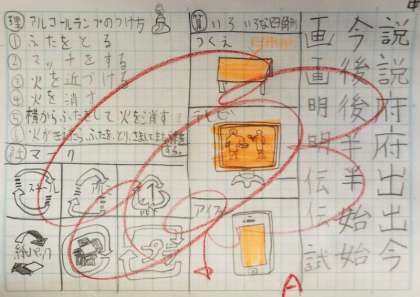 理 アルコールランプのつけ方
①ふたをとる
②マッチをする
③火を近づける
④火を消す
⑤横からふたをして火を消す
マーク
スチール
アルミ
PET
紙パック
算 いろいろな四角形
つくえ
テレビ
アイフォ
説府府出出今
今後後半半始始
画画明明伝伝試
A